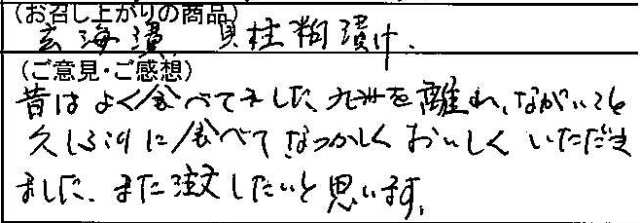 (お召し上がりの商品)
玄海漬 貝柱粕漬け、
(ご意見・ご感想)
昔はよく食べてました、九州を離れ、ながいこと
久しぶりに食べてなつかしくおいしくいただき
ました、また注文したいと思います。